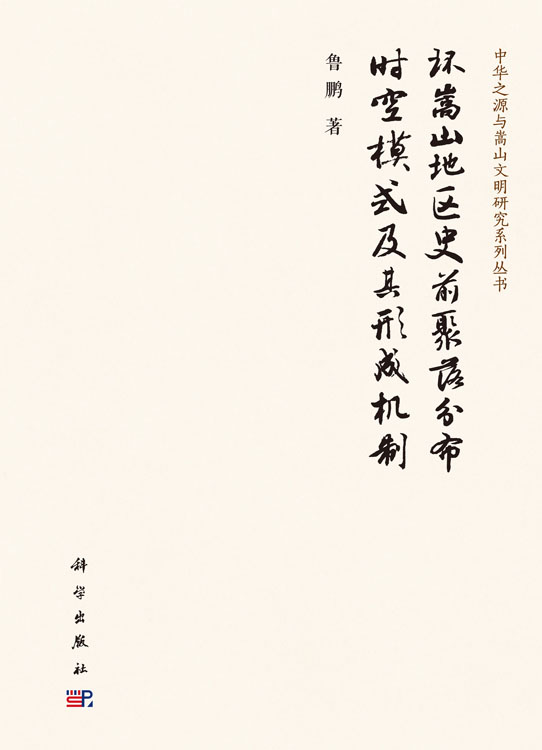 中华之源与嵩山文明研究系列丛书
环嵩山地区史前聚落分布
时空模式及其形成机制
鲁鹏 著
科学出版社